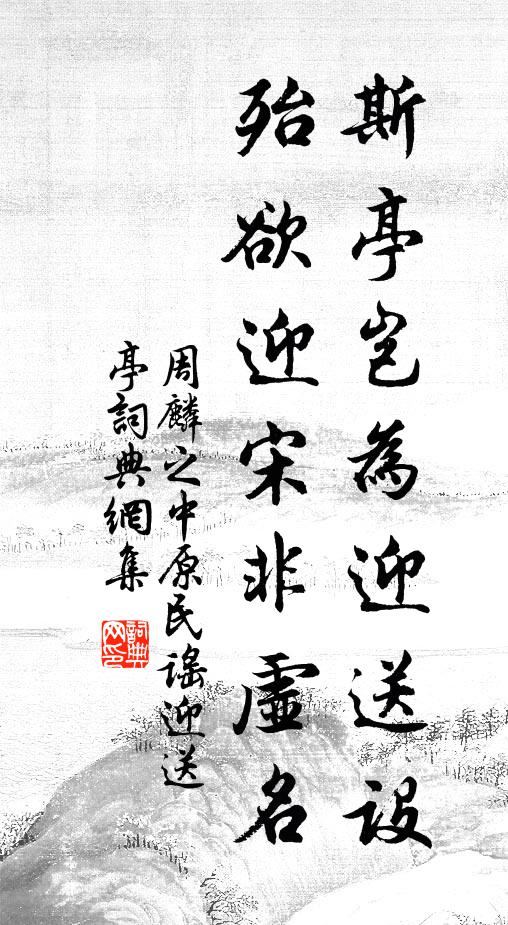 斯亭岂為迎送設
殆欲迎宋非虛名
周麟之中原民謠迎送
亭詞典網集
詞典
网印